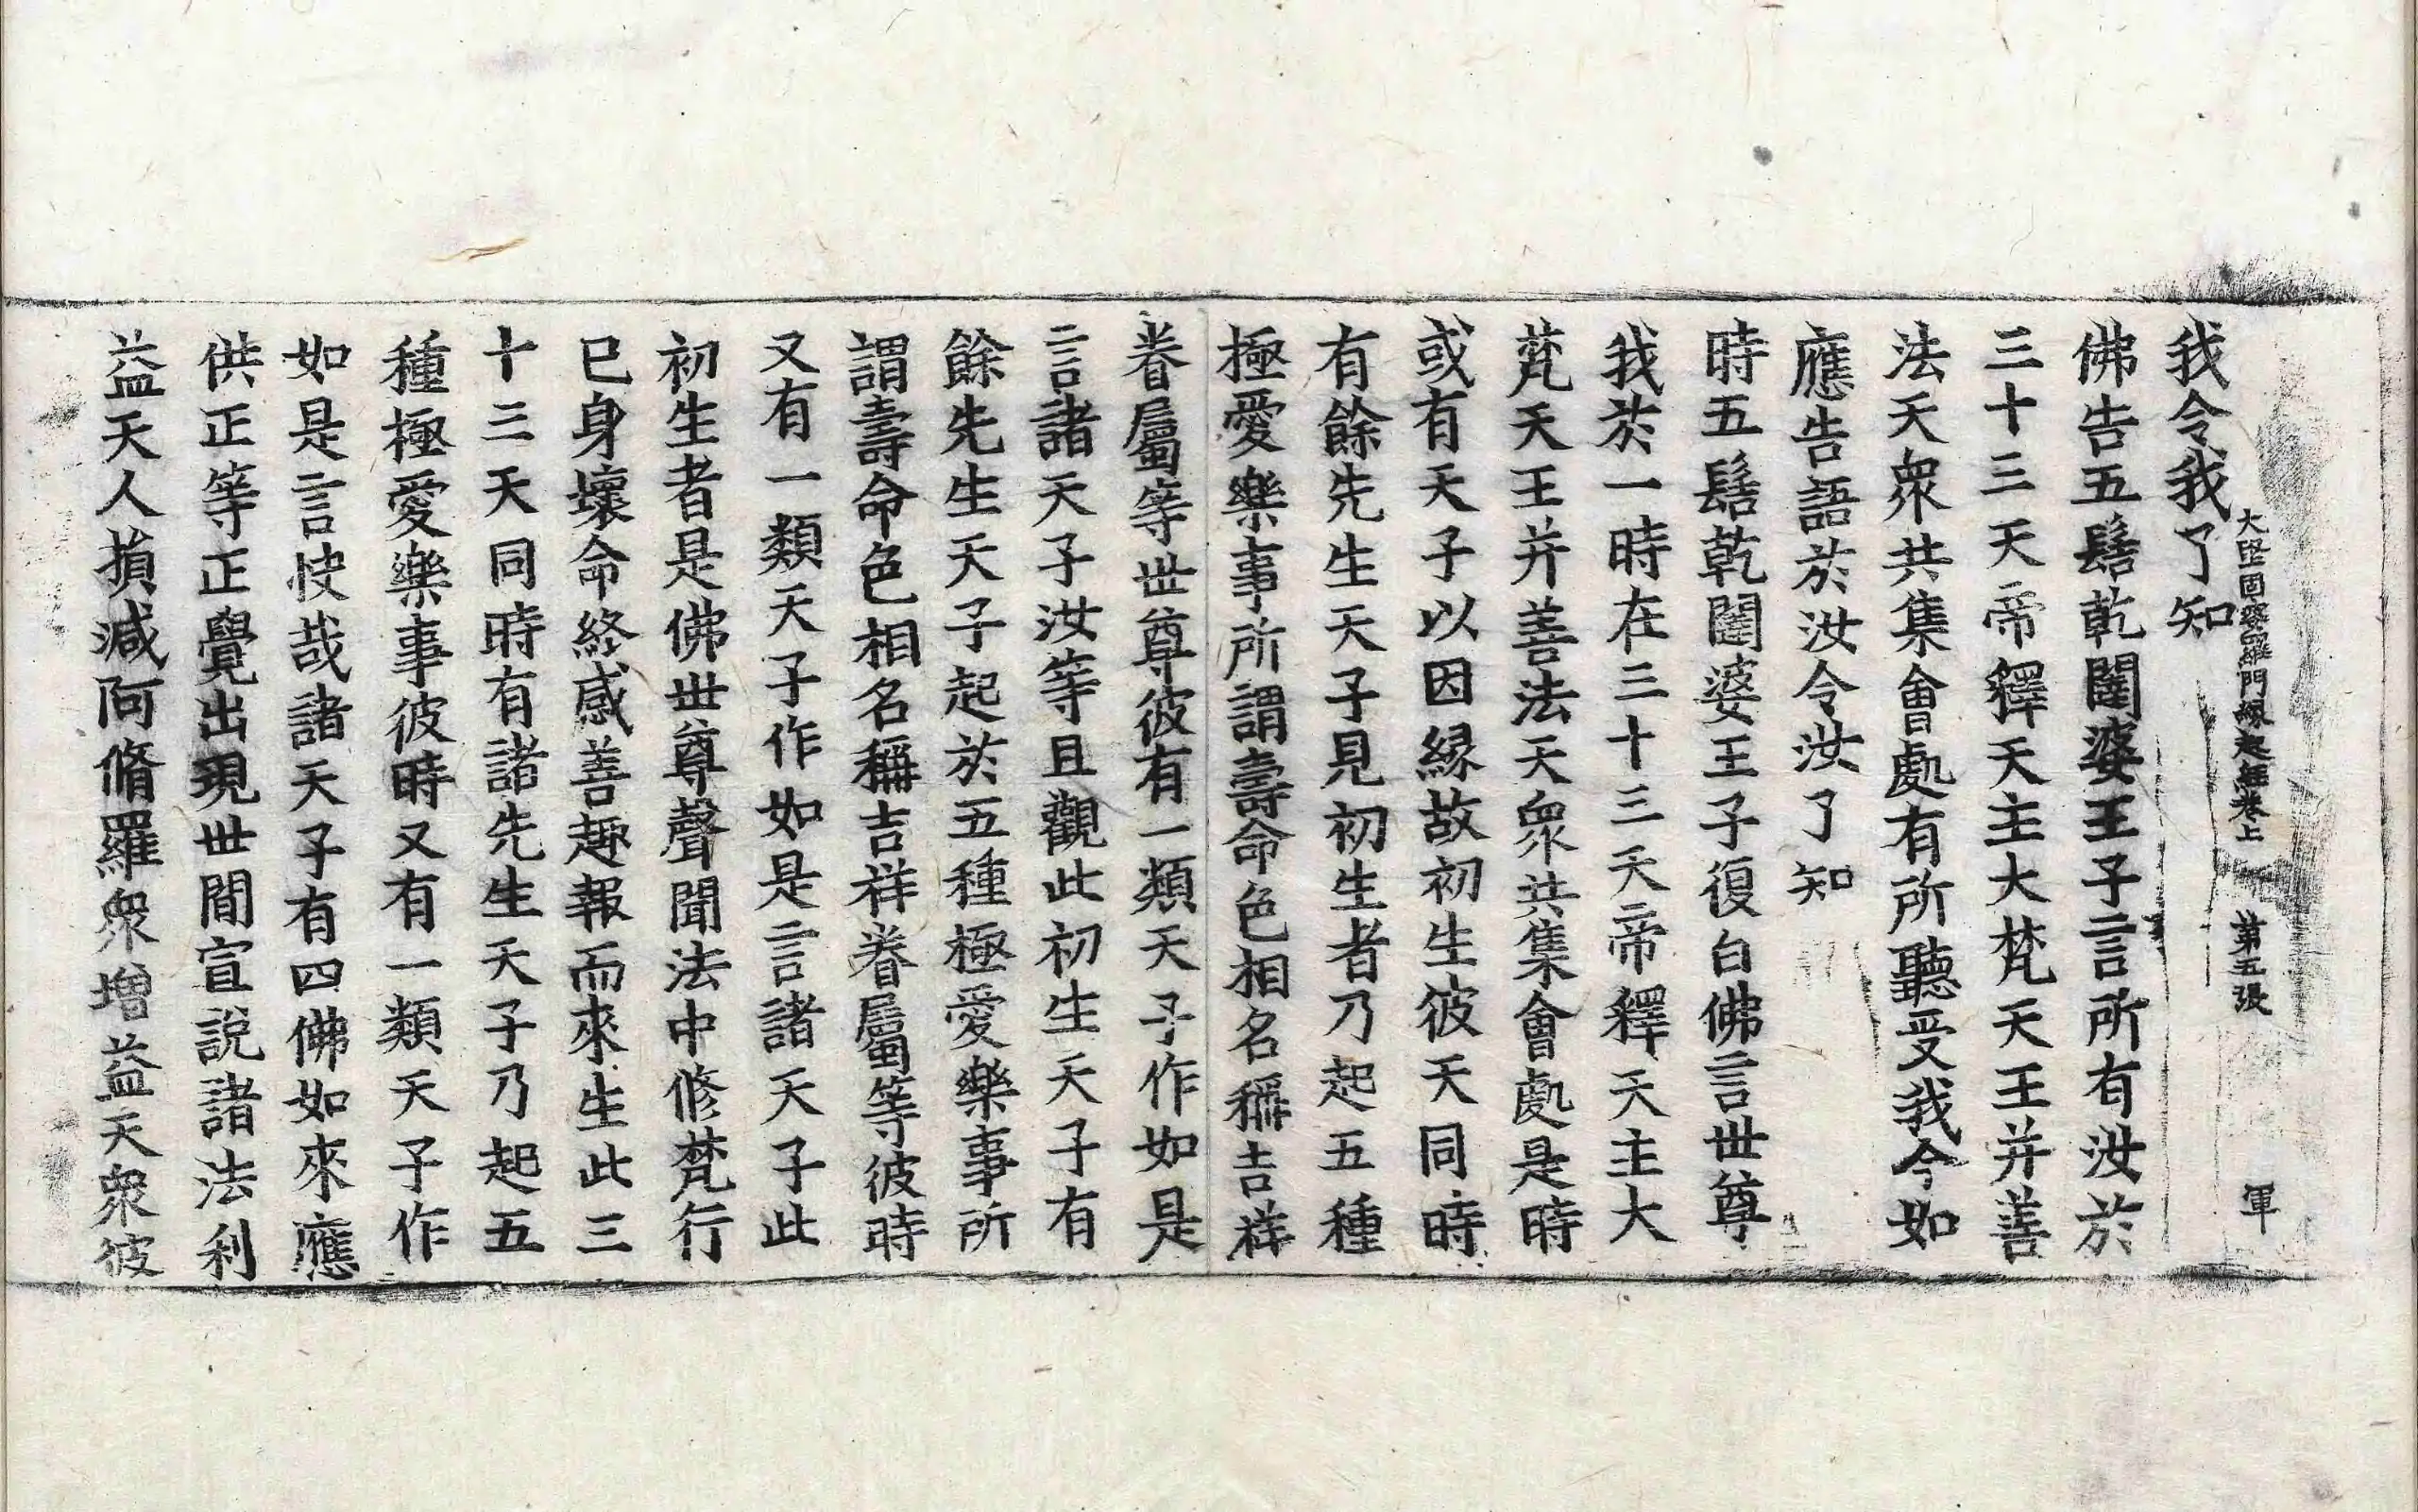 大堅固婆羅門縁起經卷上　第五張　軍
我令我了知
佛告五髻乾闥婆王子言所有汝於
三十三天帝釋天主大梵天王并善
法天衆共集會處有所聽受我今如
應告語於汝令汝了知
時五髻乾闥婆王子復白佛言世尊
我於一時在三十三天帝釋天主大
梵天王并善法天衆共集會處是時
或有天子以因縁故初生彼天同時
有餘先生天子見初生者乃起五種
極愛樂事所謂壽命色相名稱吉祥
眷屬等世尊彼有一類天子作如是
言諸天子汝等且觀此初生天子有
餘先生天子起於五種極愛樂事所
謂壽命色相名稱吉祥眷屬等彼時
又有一類天子作如是言諸天子此
初生者是佛世尊聲聞法中修梵行
已身壞命終感善趣報而來生此三
十三天同時有諸先生天子乃起五
種極愛樂事彼時又有一類天子作
如是言快哉諸天子有四佛如來應
供正等正覺出現世間宣說諸法利
益天人損減阿脩羅衆增益天衆彼